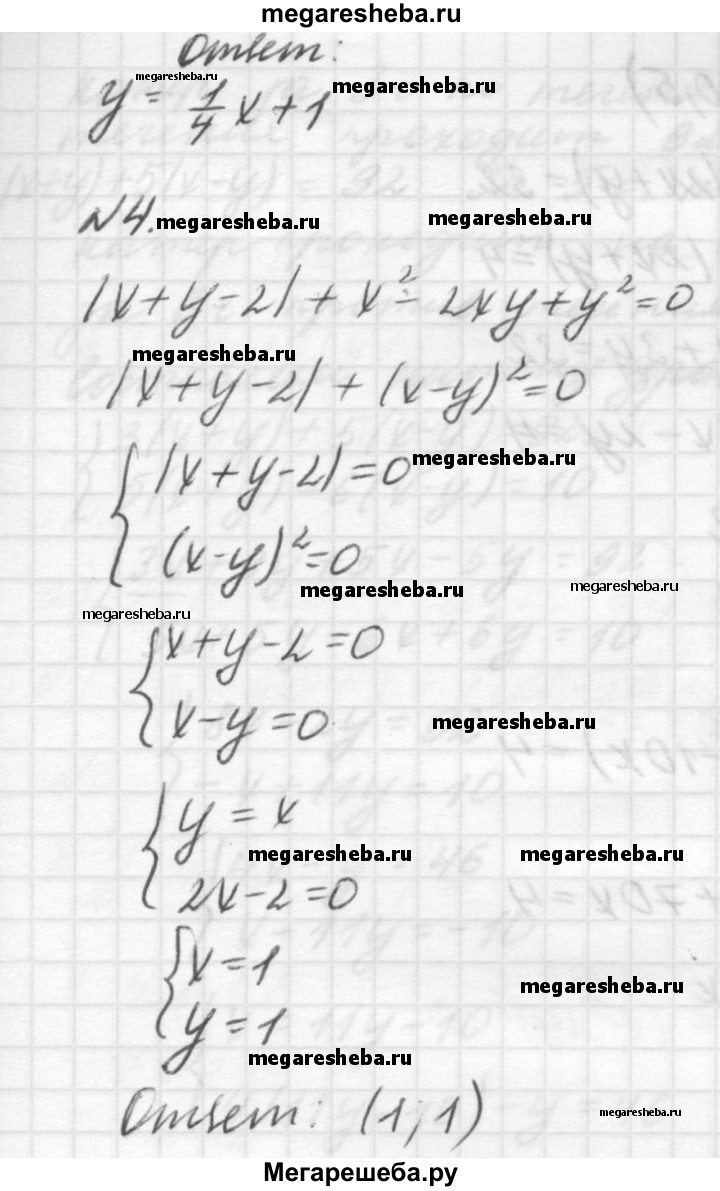 megaresheba.ru
Ответ:
megaresheba.ru
y = 1/4 x + 1 megaresheba.ru
№4. megaresheba.ru megaresheba.ru
|x + y - 2| + x² - 2xy + y² = 0
megaresheba.ru
|x + y - 2| + (x - y)² = 0
{ |x + y - 2| = 0 megaresheba.ru
(x - y)² = 0
megaresheba.ru megaresheba.ru
megaresheba.ru
{ x + y - 2 = 0
x - y = 0 megaresheba.ru
{ y = x
megaresheba.ru megaresheba.ru
2x - 2 = 0
{ x = 1
megaresheba.ru
y = 1
megaresheba.ru
Ответ: (1; 1) megaresheba.ru
Мегарешеба.ру